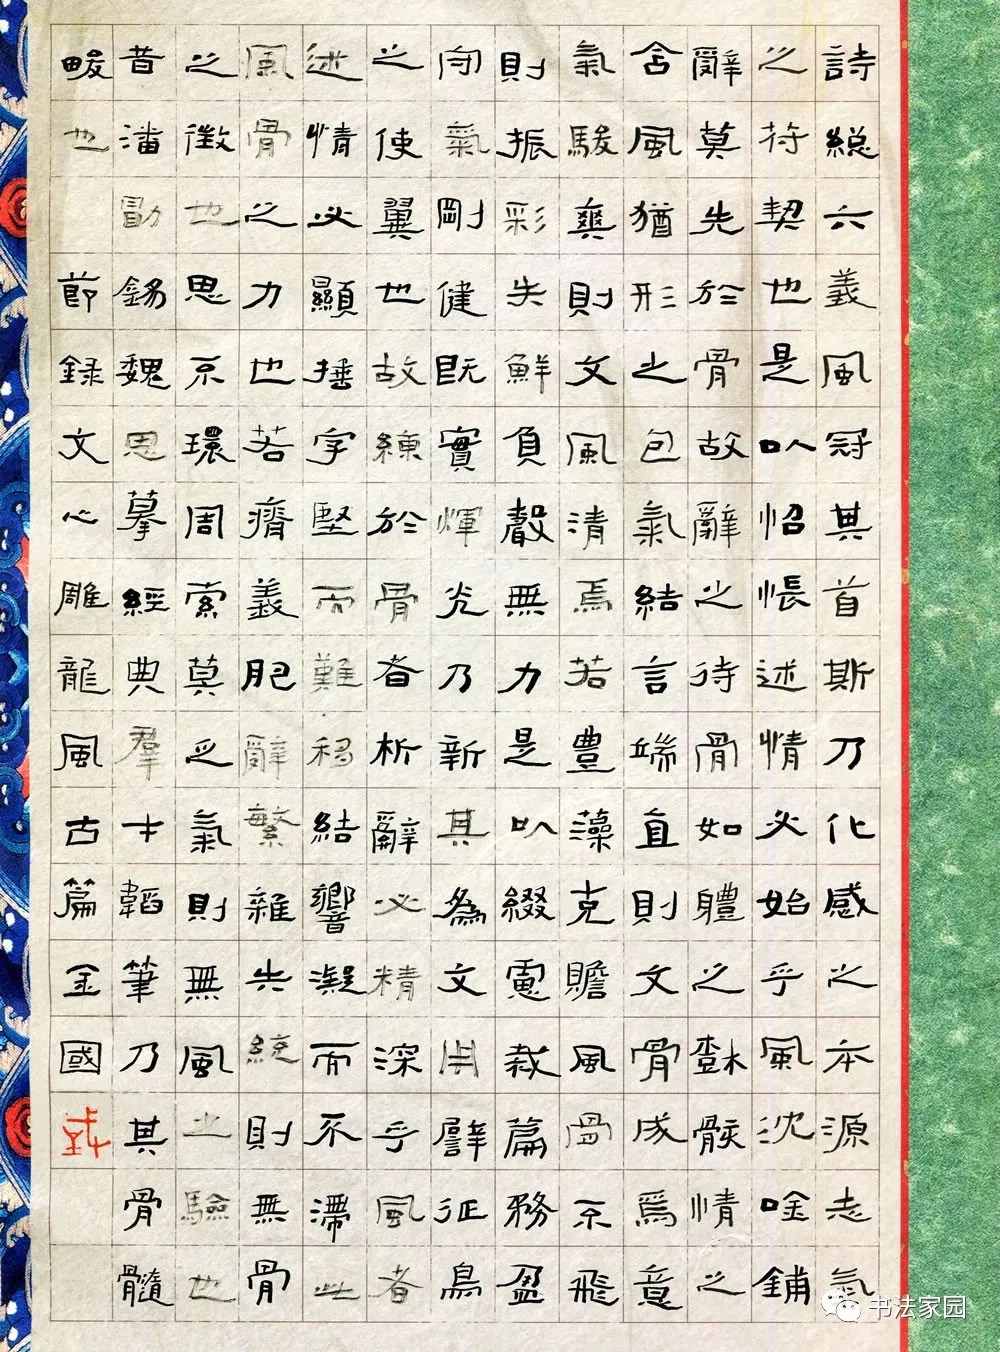 詩総六義風冠其首斯乃化感之本源志氣
之符契也是以怊悵述情必始乎風沈唫鋪
辭莫先於骨故辭之待骨如體之樹骸情之
含風猶形之包氣結言端直則文骨成焉意
氣駿爽則文風清焉若豊藻克贍風骨不飛
則振彩失鮮負聲無力是以綴慮裁篇務盈
守氣剛健既實輝光乃新其為文用譬征鳥
之使翼也故練於骨者析辭必精深乎風者
述情必顯捶字堅而難移結響凝而不滯此
風骨之力也若瘠義肥辭繁雜失統則無骨
之徵也思不環周索莫乏氣則無風之驗也
昔潘勖錫魏思摹經典羣才韜筆乃其骨髓
畯也 節録文心雕龍風古篇金國
书法家园